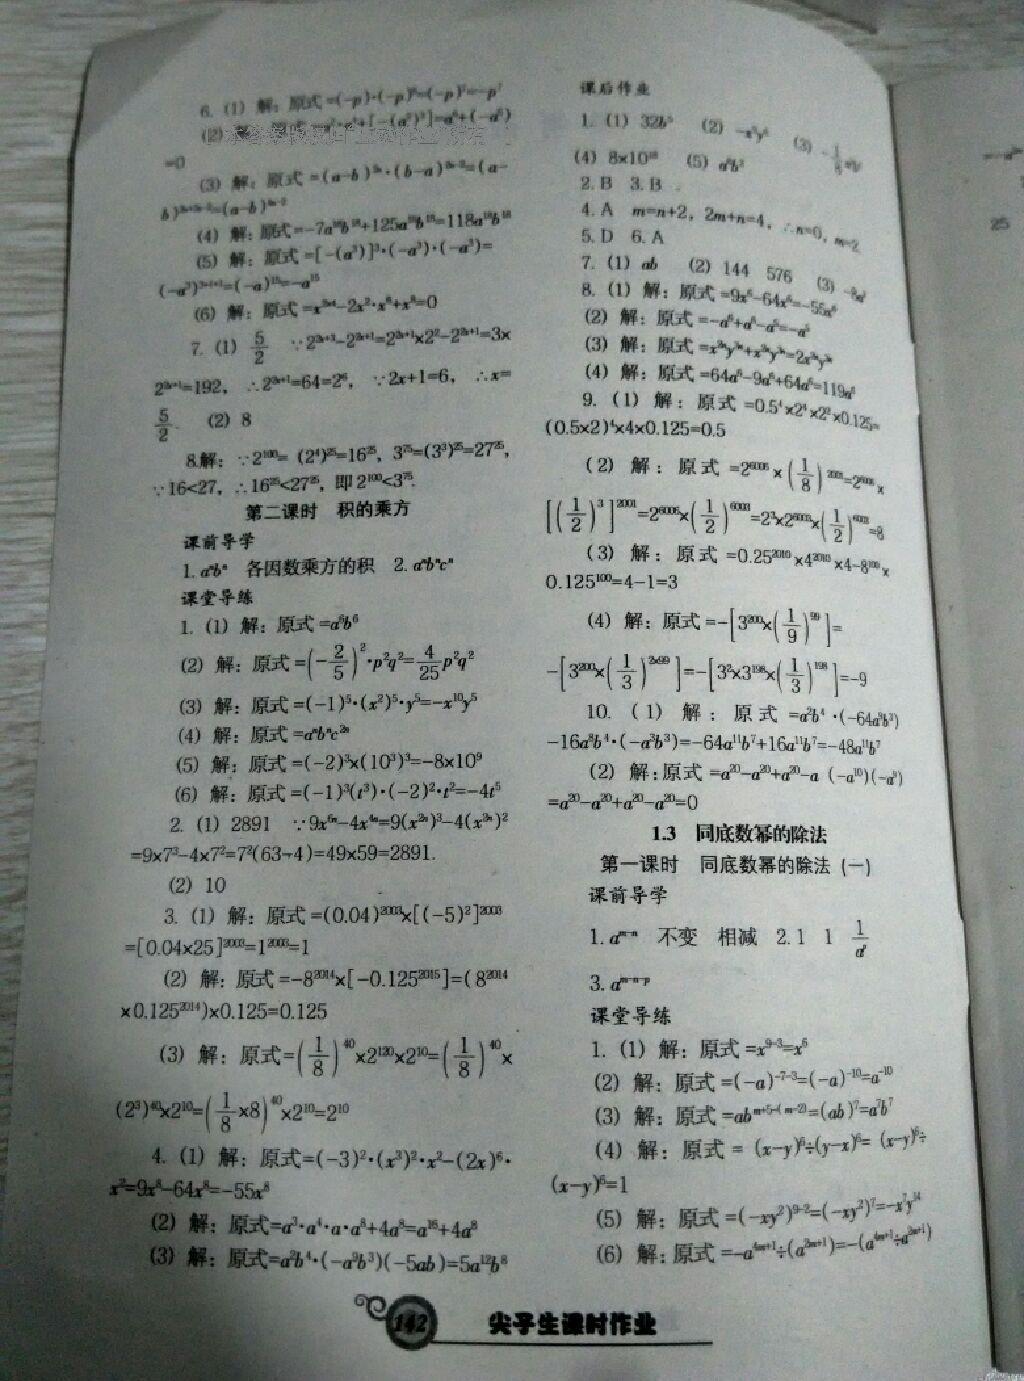 6. (1) 解：原式=(-p)·(-p)⁶=(-p)⁷=-p⁷
(2)
=0
(3) 解：原式=(a-b)³ⁿ·(b-a)²ⁿ⁻²=(a-
(4) 解：原式=-7a¹⁸b¹⁸+125a¹⁸b¹⁸=118a¹⁸b¹⁸
(5) 解：原式=[-(a³)]³·(-a³)·(-a³)=
(6) 解：原式=x³ⁿ⁺⁴-2x²·x⁶+x⁸=0
7. (1) 5/2 ∵2²ˣ⁺³-2²ˣ⁺¹=2²ˣ⁺¹×2²-2²ˣ⁺¹=3×
2²ˣ⁺¹=192，∴2²ˣ⁺¹=64=2⁶，∵2x+1=6，∴x=
5/2 (2) 8
8.解：∵2¹⁰⁰=(2⁴)²⁵=16²⁵，3⁷⁵=(3³)²⁵=27²⁵，
∵16<27，∴16²⁵<27²⁵，即2¹⁰⁰<3⁷⁵.
第二课时 积的乘方
课前导学
1.aⁿbⁿ 各因数乘方的积 2.aⁿbⁿcⁿ
课堂导练
1. (1) 解：原式=a⁶b⁶
(2) 解：原式=(-2/5)²·p²q²=4/25p²q²
(3) 解：原式=(-1)⁵·(x²)⁵·y⁵=-x¹⁰y⁵
(4) 解：原式=aⁿbⁿc²ⁿ
(5) 解：原式=(-2)³×(10³)³=-8×10⁹
(6) 解：原式=(-1)³(t³)·(-2)²·t²=-4t⁵
2. (1) 2891 ∵9x⁶ⁿ-4x⁴ⁿ=9(x²ⁿ)³-4(x²ⁿ)²
=9×7³-4×7²=7²(63-4)=49×59=2891.
(2) 10
3. (1) 解：原式=(0.04)²⁰⁰³×[(-5)²]²⁰⁰³
=[0.04×25]²⁰⁰³=1²⁰⁰³=1
(2) 解：原式=-8²⁰¹⁴×[-0.125²⁰¹⁵]=(8²⁰¹⁴
×0.125²⁰¹⁴)×0.125=0.125
(3) 解：原式=(1/8)⁴⁰×2¹²⁰×2¹⁰=(1/8)⁴⁰×
(2³)⁴⁰×2¹⁰=(1/8×8)⁴⁰×2¹⁰=2¹⁰
4. (1) 解：原式=(-3)²·(x³)²·x²-(2x)⁶·
x²=9x⁸-64x⁸=-55x⁸
(2) 解：原式=a³·a⁴·a·a⁸+4a⁸=a¹⁶+4a⁸
(3) 解：原式=a²b⁴·(-a⁹b³)(-5ab)=5a¹²b⁸
课后作业
1. (1) 32b⁵ (2) -x³y⁶ (3)
(4) 8×10¹⁸ (5) a⁶b²
2. B 3. B
4. A m=n+2，2m+n=4，∴n=0，m=2
5. D 6. A
7. (1) ab (2) 144 576 (3)
8. (1) 解：原式=9x⁶-64x⁶=-55x⁶
(2) 解：原式=-a⁶+a⁶-a⁵=-a⁵
(3) 解：原式=x³ⁿy³ⁿ+x³ⁿy³ⁿ=2x³ⁿy³ⁿ
(4) 解：原式=64a⁶-9a⁶+64a⁶=119a⁶
9. (1) 解：原式=0.5⁴×2⁴×2²×0.125=
(0.5×2)⁴×4×0.125=0.5
(2) 解：原式=2⁶⁰⁰⁶×(1/8)²⁰⁰¹=2⁶⁰⁰⁶×
[(1/2)³]²⁰⁰¹=2⁶⁰⁰⁶×(1/2)⁶⁰⁰³=2³×2⁶⁰⁰³×(1/2)⁶⁰⁰³=8
(3) 解：原式=0.25²⁰¹⁰×4²⁰¹⁰×4-8¹⁰⁰×
0.125¹⁰⁰=4-1=3
(4) 解：原式=-[3²⁰⁰×(1/9)⁹⁹]=
-[3²⁰⁰×(1/3)²ˣ⁹⁹]=-[3²×3¹⁹⁸×(1/3)¹⁹⁸]=-9
10. (1) 解：原式=a²b⁴·(-64a⁹b³)
-16a⁸b⁴·(-a³b³)=-64a¹¹b⁷+16a¹¹b⁷=-48a¹¹b⁷
(2) 解：原式=a²⁰-a²⁰+a²⁰-a (-a¹⁰)(-a⁹)
=a²⁰-a²⁰+a²⁰-a²⁰=0
1.3 同底数幂的除法
第一课时 同底数幂的除法 (一)
课前导学
1.aᵐ⁻ⁿ 不变 相减 2.1 1 1/aʳ
3.aᵐ⁻ⁿ⁻ᵖ
课堂导练
1. (1) 解：原式=x⁹⁻³=x⁶
(2) 解：原式=(-a)⁻⁷⁻³=(-a)⁻¹⁰=a⁻¹⁰
(3) 解：原式=abᵐ⁺⁵⁻⁽ᵐ⁻²⁾=(ab)⁷=a⁷b⁷
(4) 解：原式=(x-y)⁶÷(y-x)⁶=(x-y)⁶÷
(x-y)⁶=1
(5) 解：原式=(-xy²)⁹⁻²=(-xy²)⁷=-x⁷y¹⁴
(6) 解：原式=-a⁴ᵐ⁺¹÷(a²ᵐ⁺¹)=-(a⁴ᵐ⁺¹÷a²ᵐ⁺¹)
25
142 尖子生课时作业